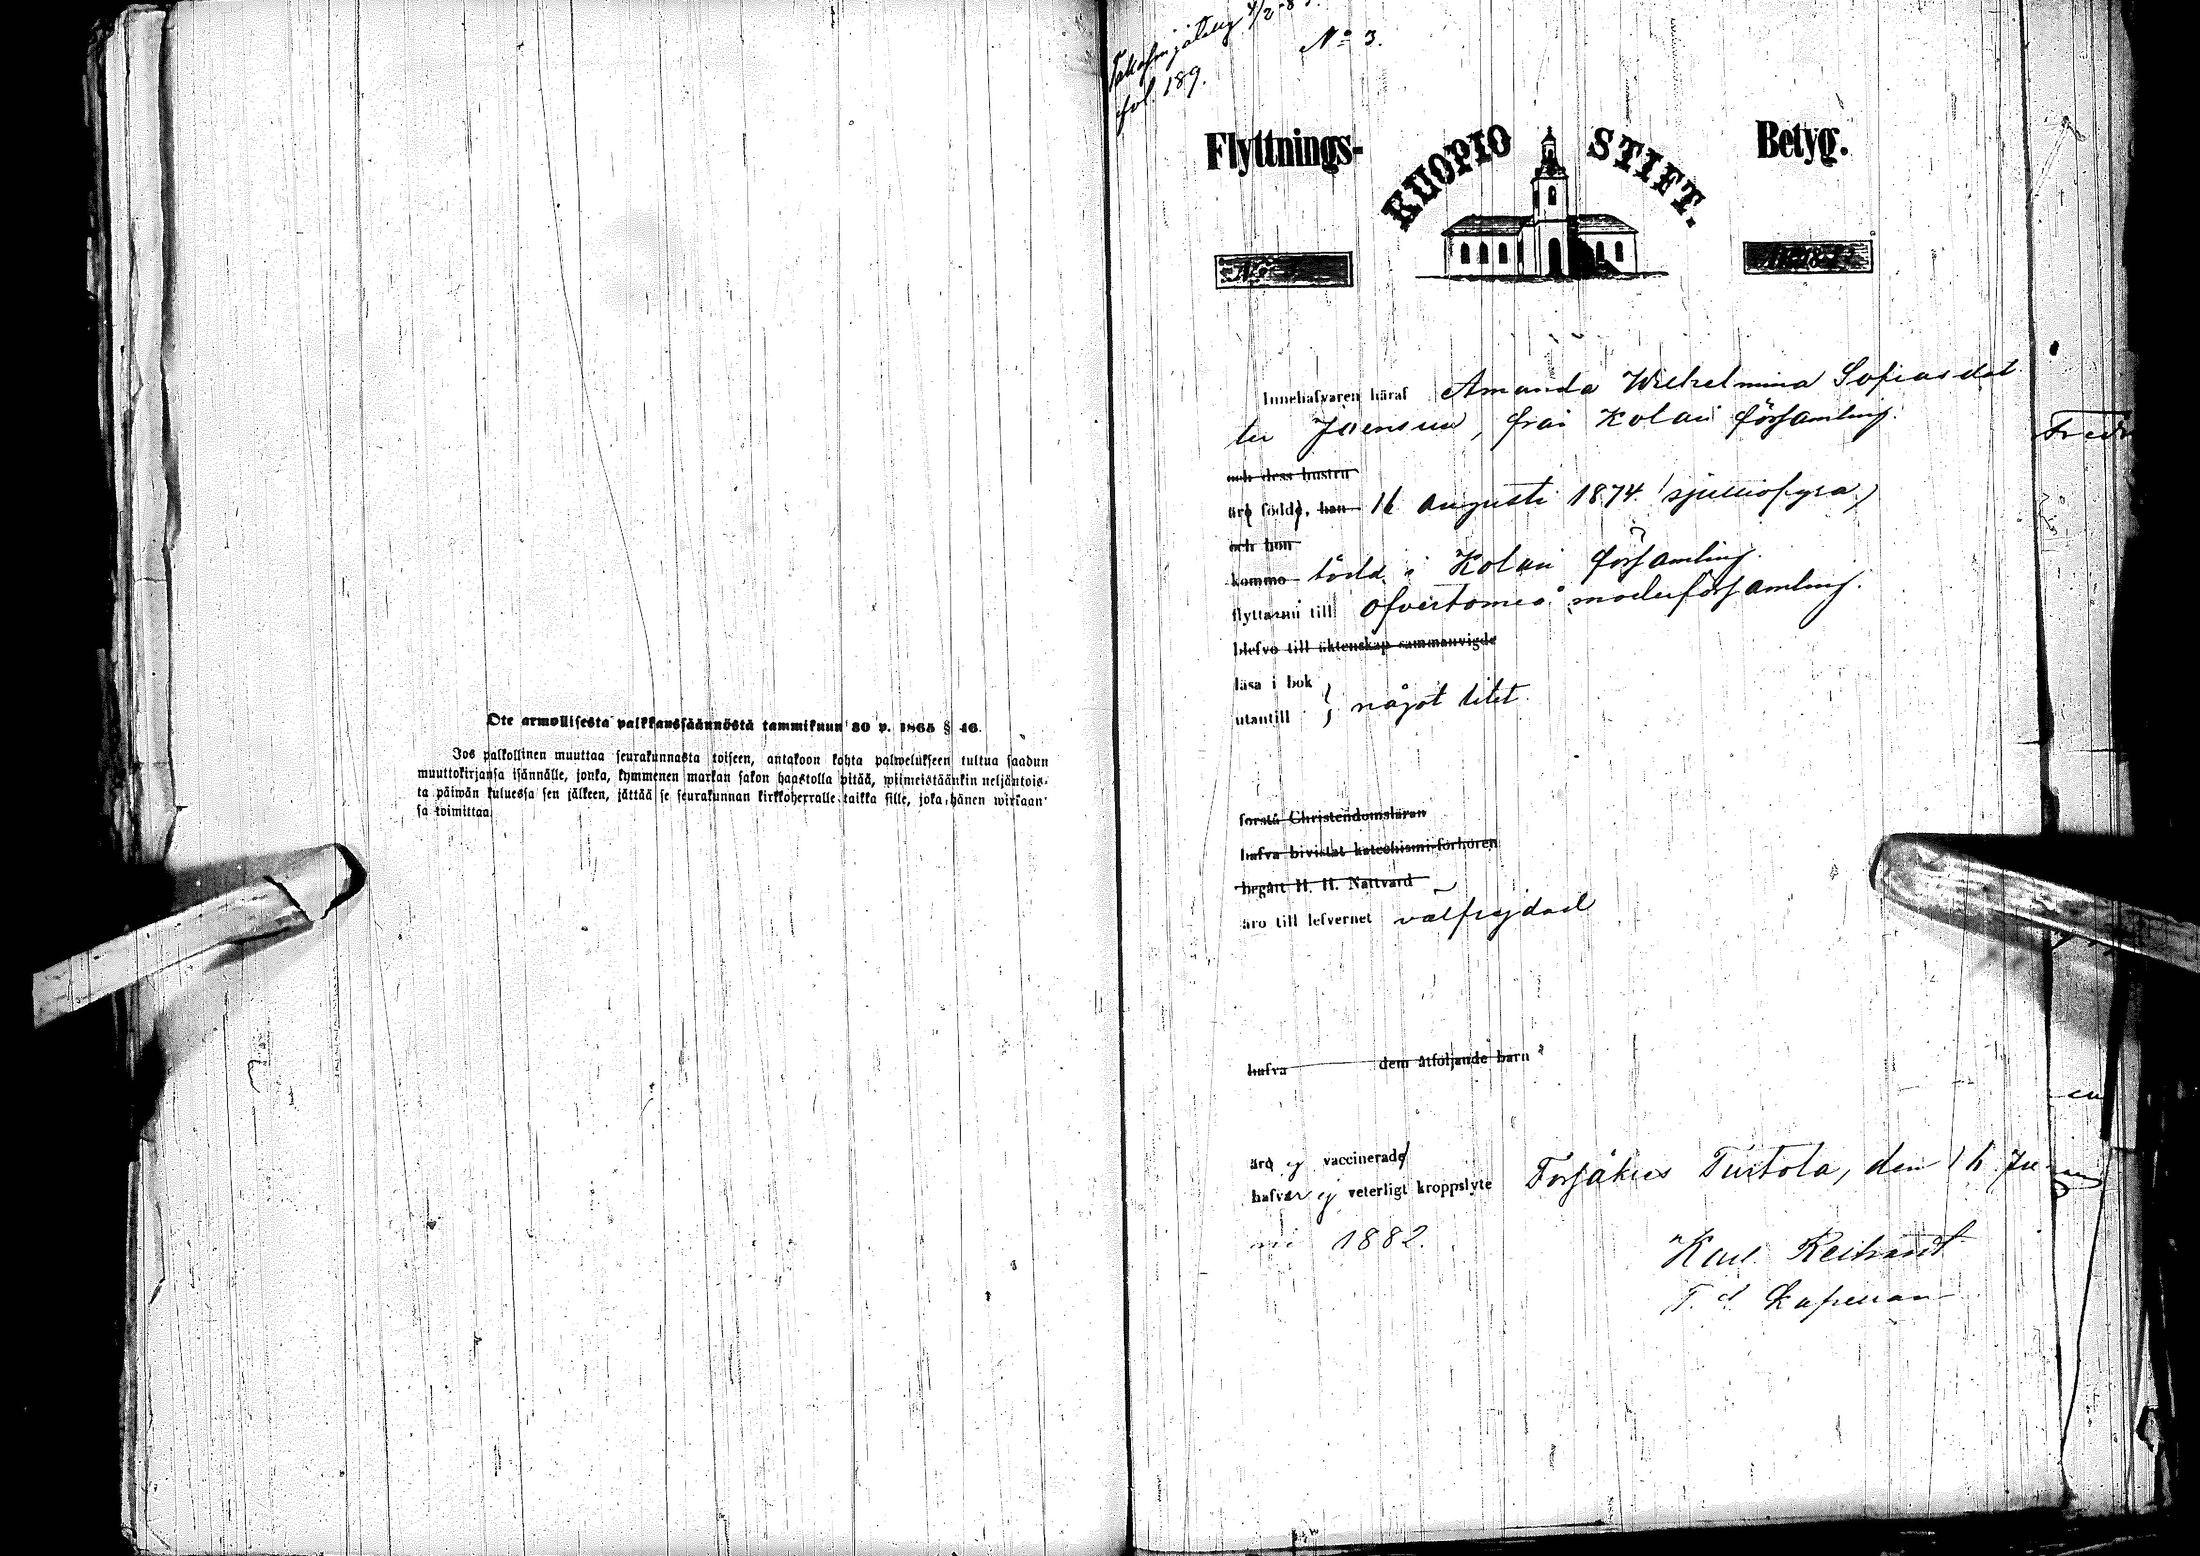 Ote armollisesta palkkaussäännöstä tammikuun 30 p. 1865 § 46.
Jos palkollinen muuttaa seurakunnasta toiseen, antakoon kohta palwelukseen tultua saadun
muuttokirjansa isännälle, jonka, kymmenen markan sakon haastolla pitää, wiimeistäänkin neljäntois-
ta päiwän kuluessa sen jälkeen, jättää se seurakunnan kirkkoherralle taikka sille, joka hänen wirkaan
sa toimittaa.
fol. 189.
No 3.
Flyttnings- KUOPIO STIFT. Betyg.
Innehafvaren häraf Amanda Wilhelmina Sofiasdot
ter Joensuu, från Kolari församling.
och dess hustru
äro födde, han 16 augusti 1874 (sjuttiofyra)
och hon
kommo född i Kolari församling.
flytta nu till Öfvertorneå moderförsamling.
blefvo till äktenskap sammanvigde
läsa i bok
utantill } något litet
förstå Christendomsläran
hafva bivistat katechismi-förhören
begått H. H. Nattvard
äro till lefvernet välfrejdad
hafva dem åtföljande barn
äro ej vaccinerade
hafva ej veterligt kroppslyte Torjäkies Turtola, den 16 Ju
ni 1882.
Karl
T. f. Kapellan